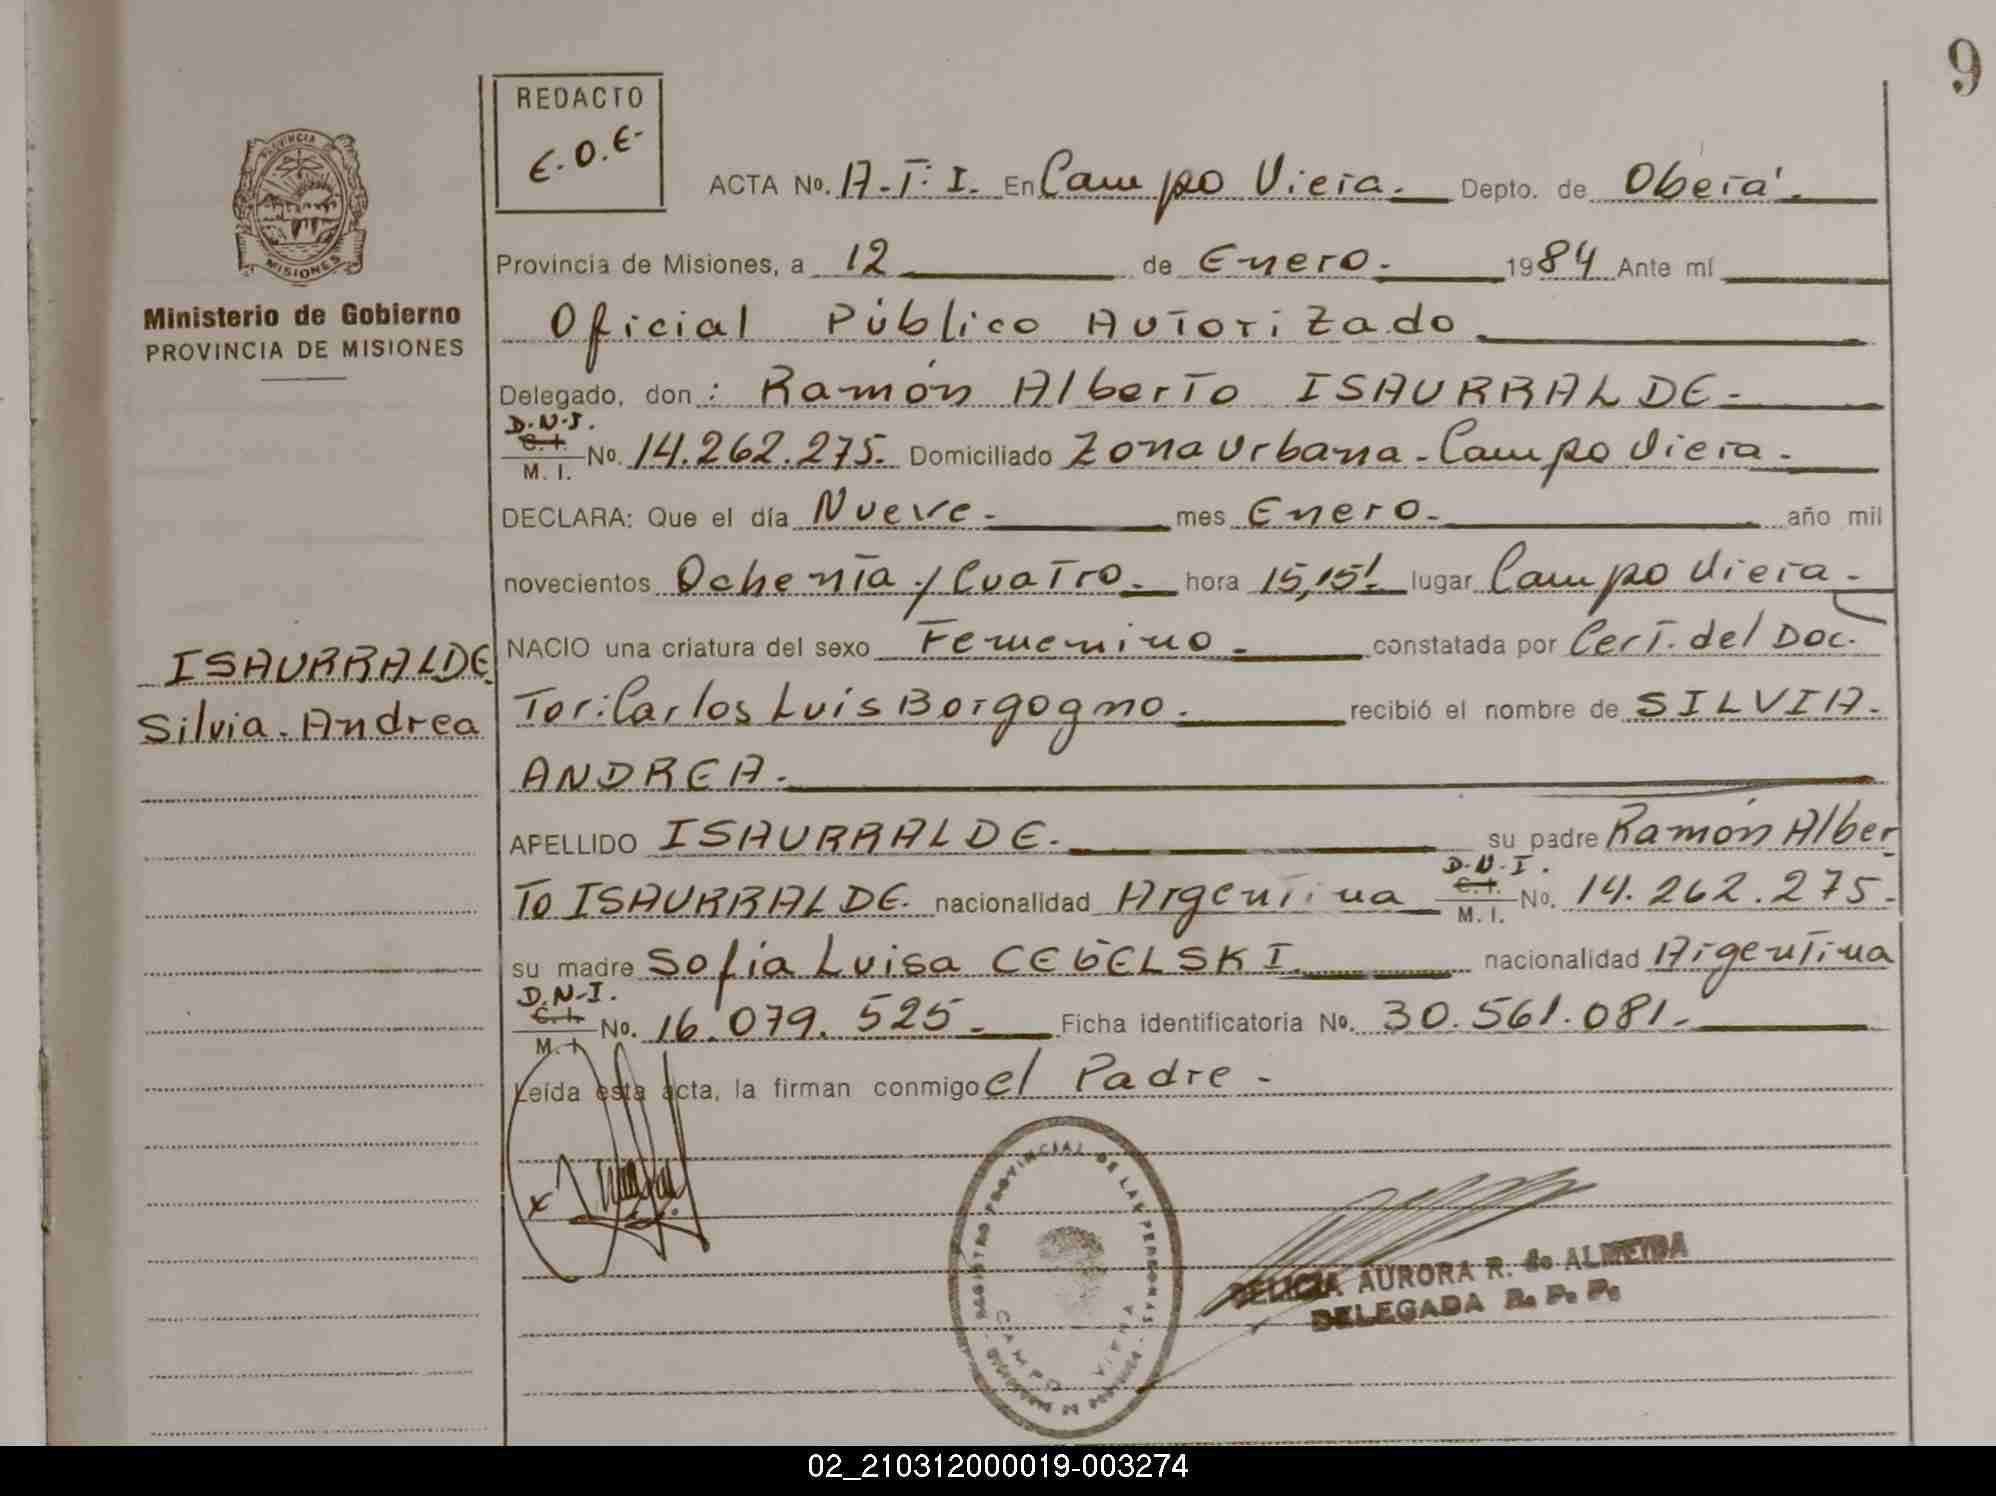 9
REDACTO
E.O.E-
PROVINCIA DE
MISIONES
Ministerio de Gobierno
PROVINCIA DE MISIONES
ACTA No. A-T: I. En Campo Viera. Depto. de Oberá.
Provincia de Misiones, a 12 de Enero. 1984 Ante mí
Oficial Público Autorizado
Delegado, don: Ramón Alberto ISAURRALDE.
D.N.I.
C. I.
M. I.
No. 14.262.275. Domiciliado Zona Urbana - Campo Viera.
DECLARA: Que el día Nueve. mes Enero. año mil
novecientos Ochenta y Cuatro. hora 15,15'. lugar Campo Viera.
NACIO una criatura del sexo Femenino. constatada por Cert. del Doc.
tor: Carlos Luis Borgogno. recibió el nombre de SILVIA.
ANDREA.
ISAURRALDE
Silvia. Andrea
APELLIDO ISAURRALDE. su padre Ramón Alber
to ISAURRALDE. nacionalidad Argentina
D.N.I.
C. I.
M. I.
No. 14.262.275.
su madre Sofía Luisa CEGELSKI nacionalidad Argentina
D.N.I.
C. I.
M. I.
No. 16.079.525. Ficha identificatoria No. 30.561.081.
Leída esta acta, la firman conmigo el Padre -
REGISTRO PROVINCIAL DE LAS PERSONAS
CAMPO VIERA
DELICIA AURORA R. de ALMEIDA
DELEGADA R. P. P.
02_210312000019-003274